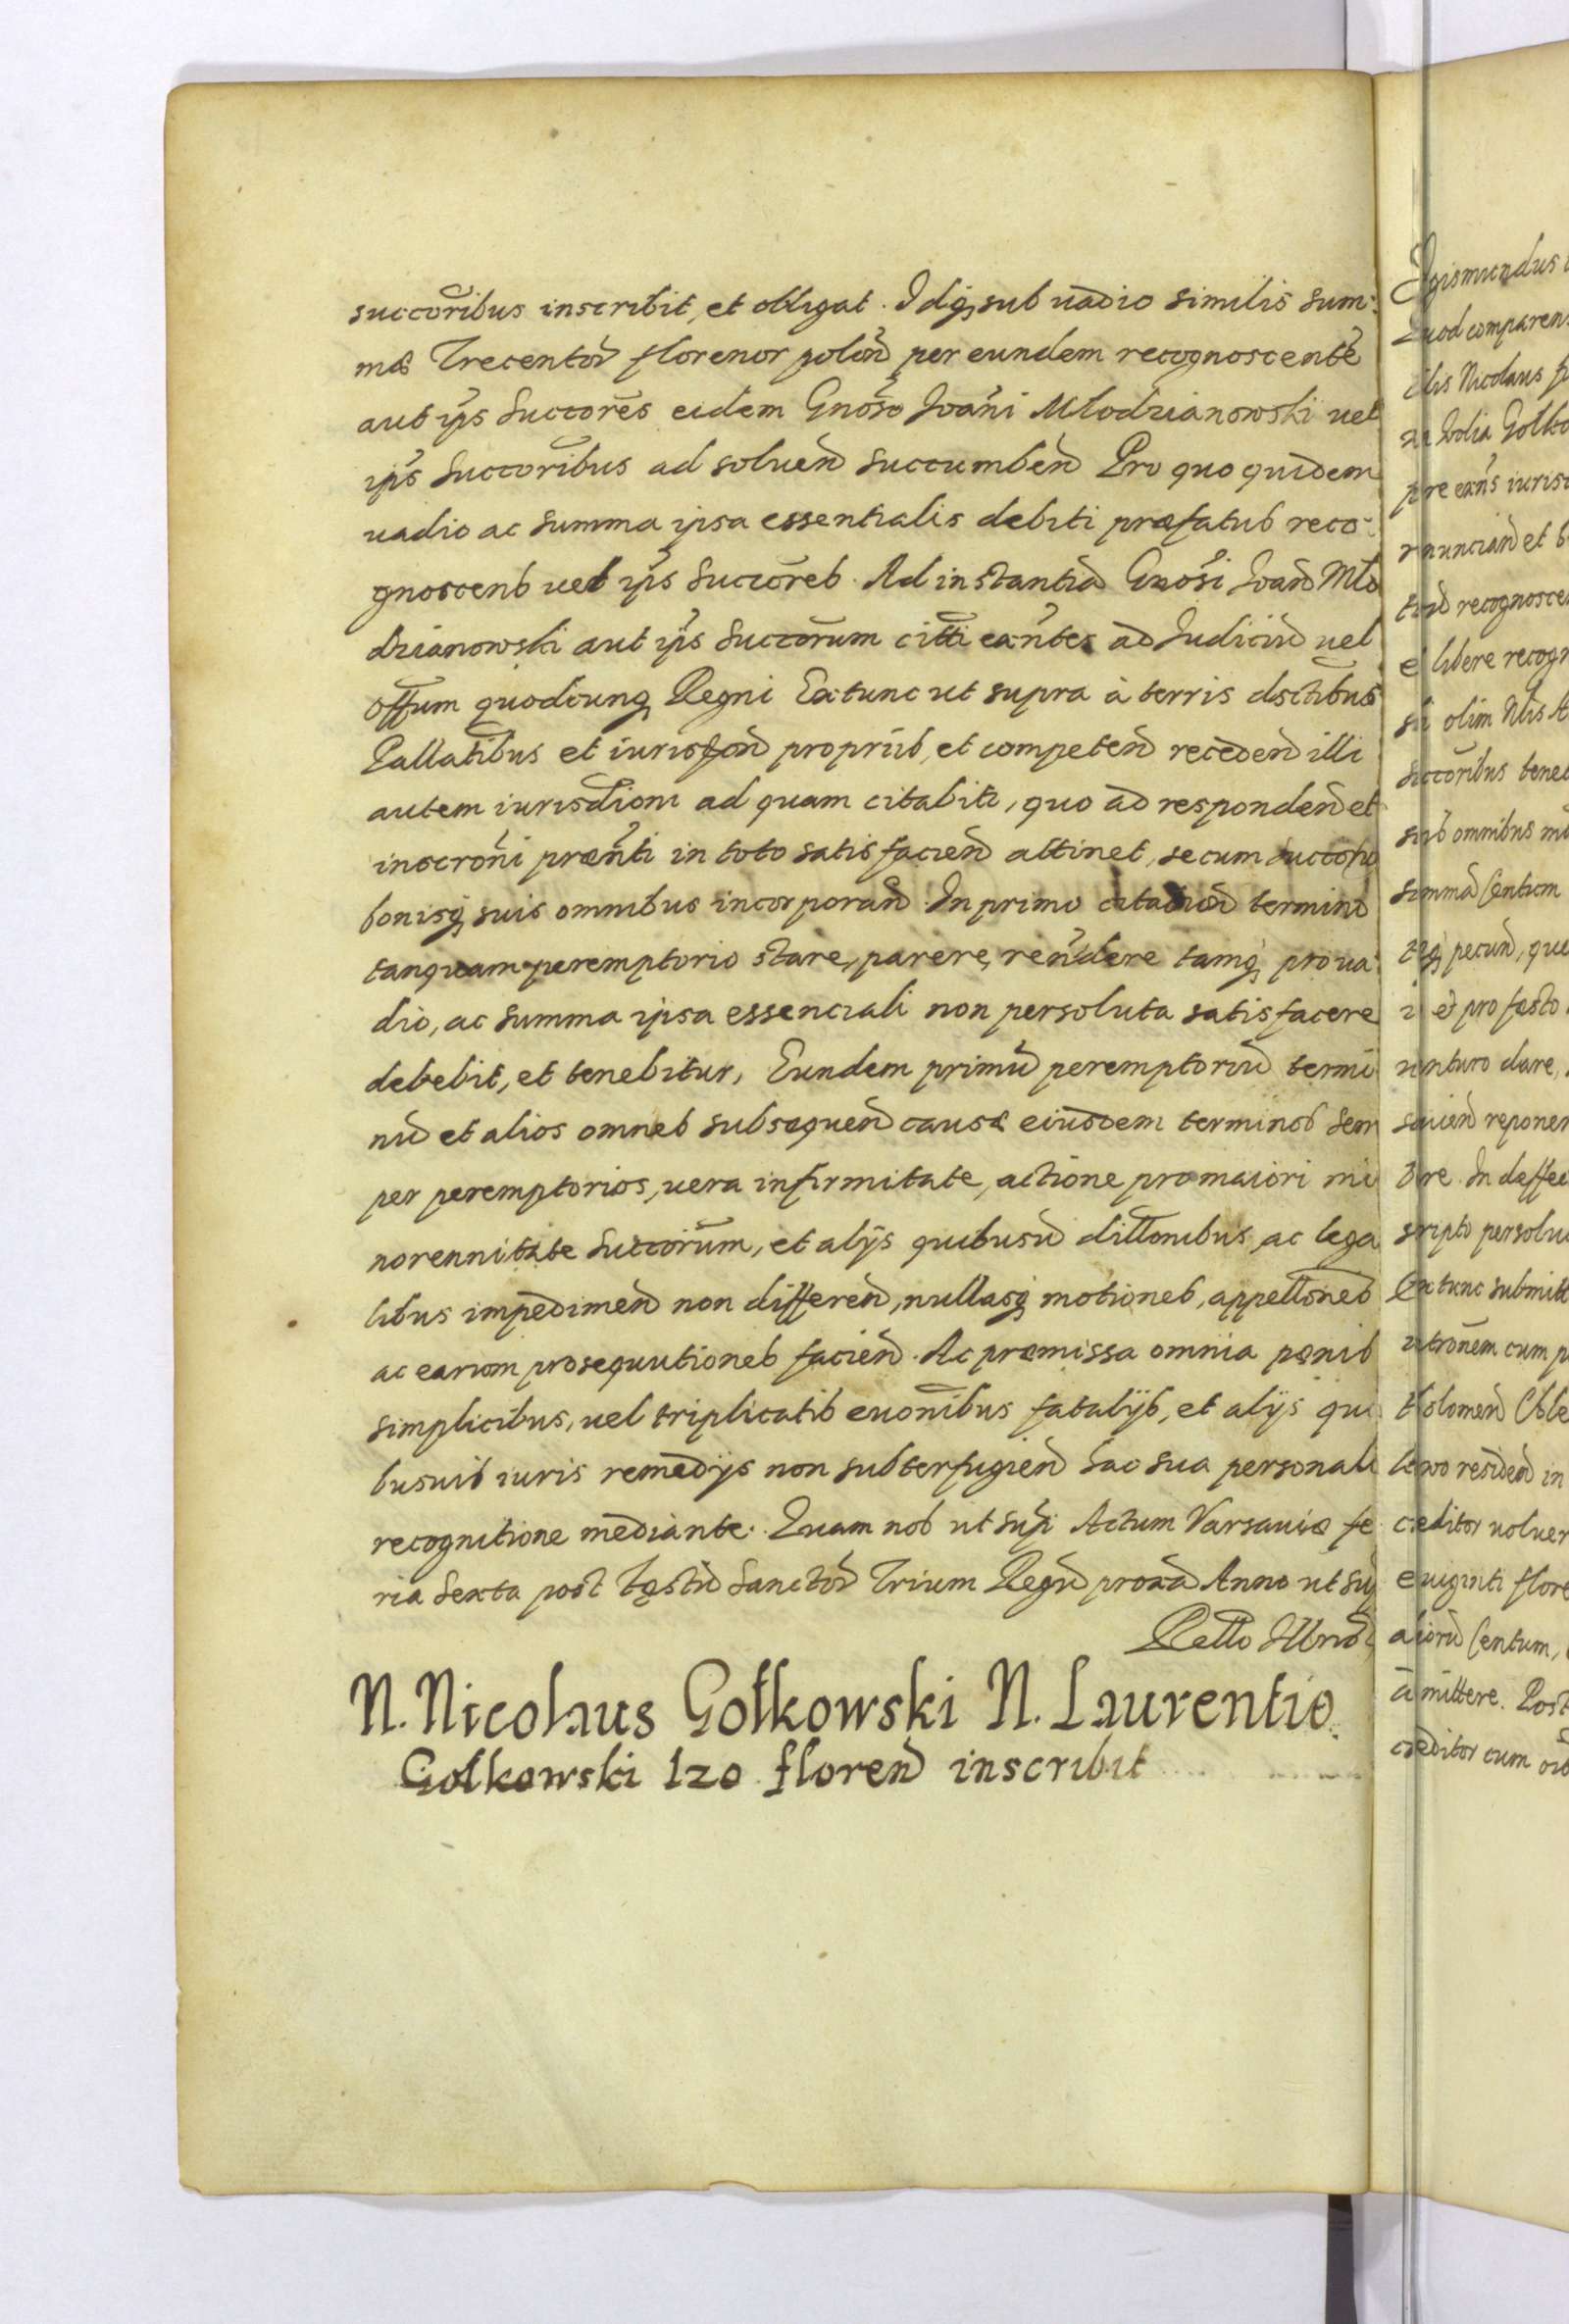 succoribus inscribit, et obligat. Idq, sub uadio similis sum:
mæ Trecentor florenor polon per eundem recognoscente
aut ips Succores eidem Gnoso Joani Młodzianowski uel
ips Succoribus ad soluen succumben Pro quo quidem
uadio ac summa ipsa essentialis debiti præfatus reco-
gnoscens uel ips Succores. Ad instantia Gnosi Joan Mło
dzianowski aut ips Succorum citti exntes ad Judiciu uel
offum quodcunq Regni Extunc ut supra à terris dsctibus
Pallatibus et iurisson proprijs, et competen receden illi
autem iurisdioni ad quam citabitr, quo ad responden et
inscroni prænti in toto satisfacien attinet, se cum succors
bonisq, suis omnibus incorporan. In primo citationi termino
tanquam peremptorio stare, parere, rendere tamq, pro ua
dio, ac summa ipsa essenciali non persoluta satisfacere
debebit, et tenebitur, Eundem primu peremptoriu termi
nu et alios omnes subsequen causæ eiusdem terminos sem
per peremptorios, uera infirmitate, actione pro maiori mi
norennitate Succorum, et alijs quibusu dillonibus, ac lega
libus impedimen non differen, nullasq motiones, appellones
ac earum prosequutiones facien. Ac præmissa omnia pœnis
simplicibus, uel triplicatis euonibus fatalijs, et alijs qui
busuis iuris remedijs non subterfugien hac sua personali
recognitione mediante. Quam nos ut supi Actum Varsauiæ fe
ria Sexta post festu Sanctor Trium Regu proxa Anno ut sup
N. Nicolaus Gołkowski N. Laurentio
Gołkowski 120 floren inscribit
gismundus
uod comparens
ilis Nicolaus
Wolia Gołko
iuris
nuncian et b
recognosce
libere recogn
olim Nlis A
Succoribus tenet
sub omnibus
summa Centum
pecun, que
et pro festo
uenturo dare,
reponer
In deffec
scripto persolu
Extunc submitt
cum p
residen in
creditor uoluer
euiginti flore
Centum,
amittere. Post
creditor cum